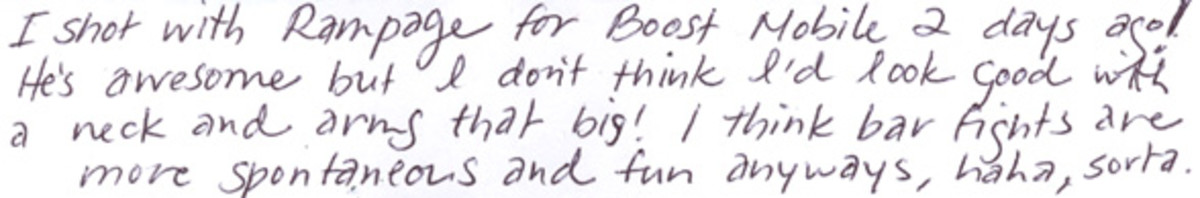 I shot with Rampage for Boost Mobile 2 days ago!
He's awesome but I don't think I'd look good with
a neck and arms that big! I think bar fights are
more spontaneous and fun anyways, haha, sorta.